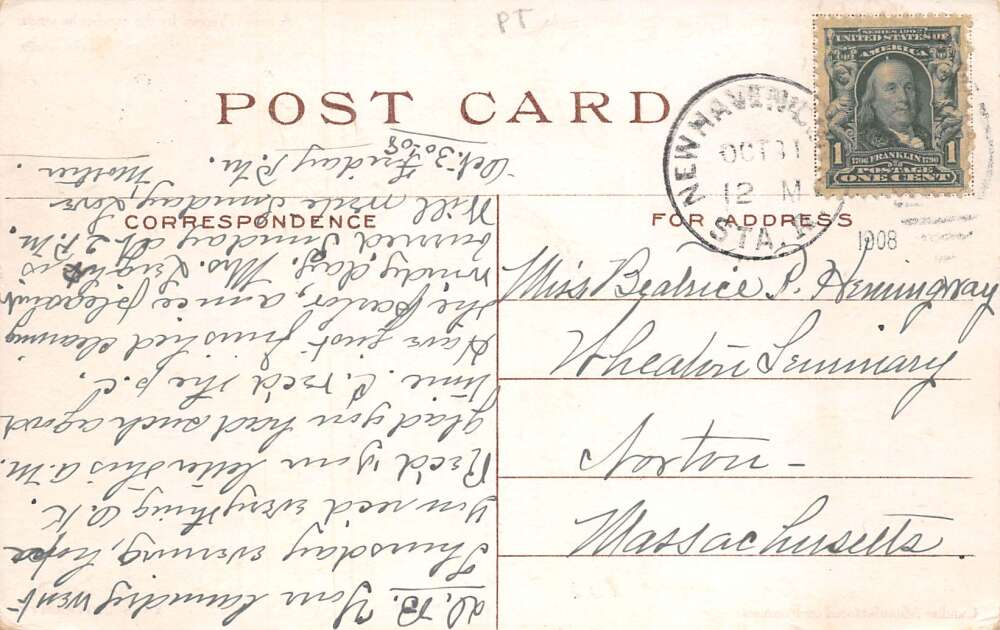 PT
POST CARD
NEW HAVEN, C
OCT 31
12 M
STA. A
1908
SERIES 1902
UNITED STATES OF
AMERICA
1
1706 FRANKLIN 1790
POSTAGE
ONE CENT
1
CORRESPONDENCE
FOR ADDRESS
Miss Beatrice P. Hemingway
Wheaton Seminary
Norton -
Massachusetts.
D. B. Your laundry went
Thursday evening, hope
You rec'd everything O.K.
Rec'd your letter this A.M.
glad you had such a good
time. C. rec'd the p.c.
Have just finished cleaning
the Parlor, a nice pleasant
windy day. Mrs. is
burried Sunday at 2 P.M.
Will write Sunday, Love
Mother.
Oct. 30-08
Friday P.M.